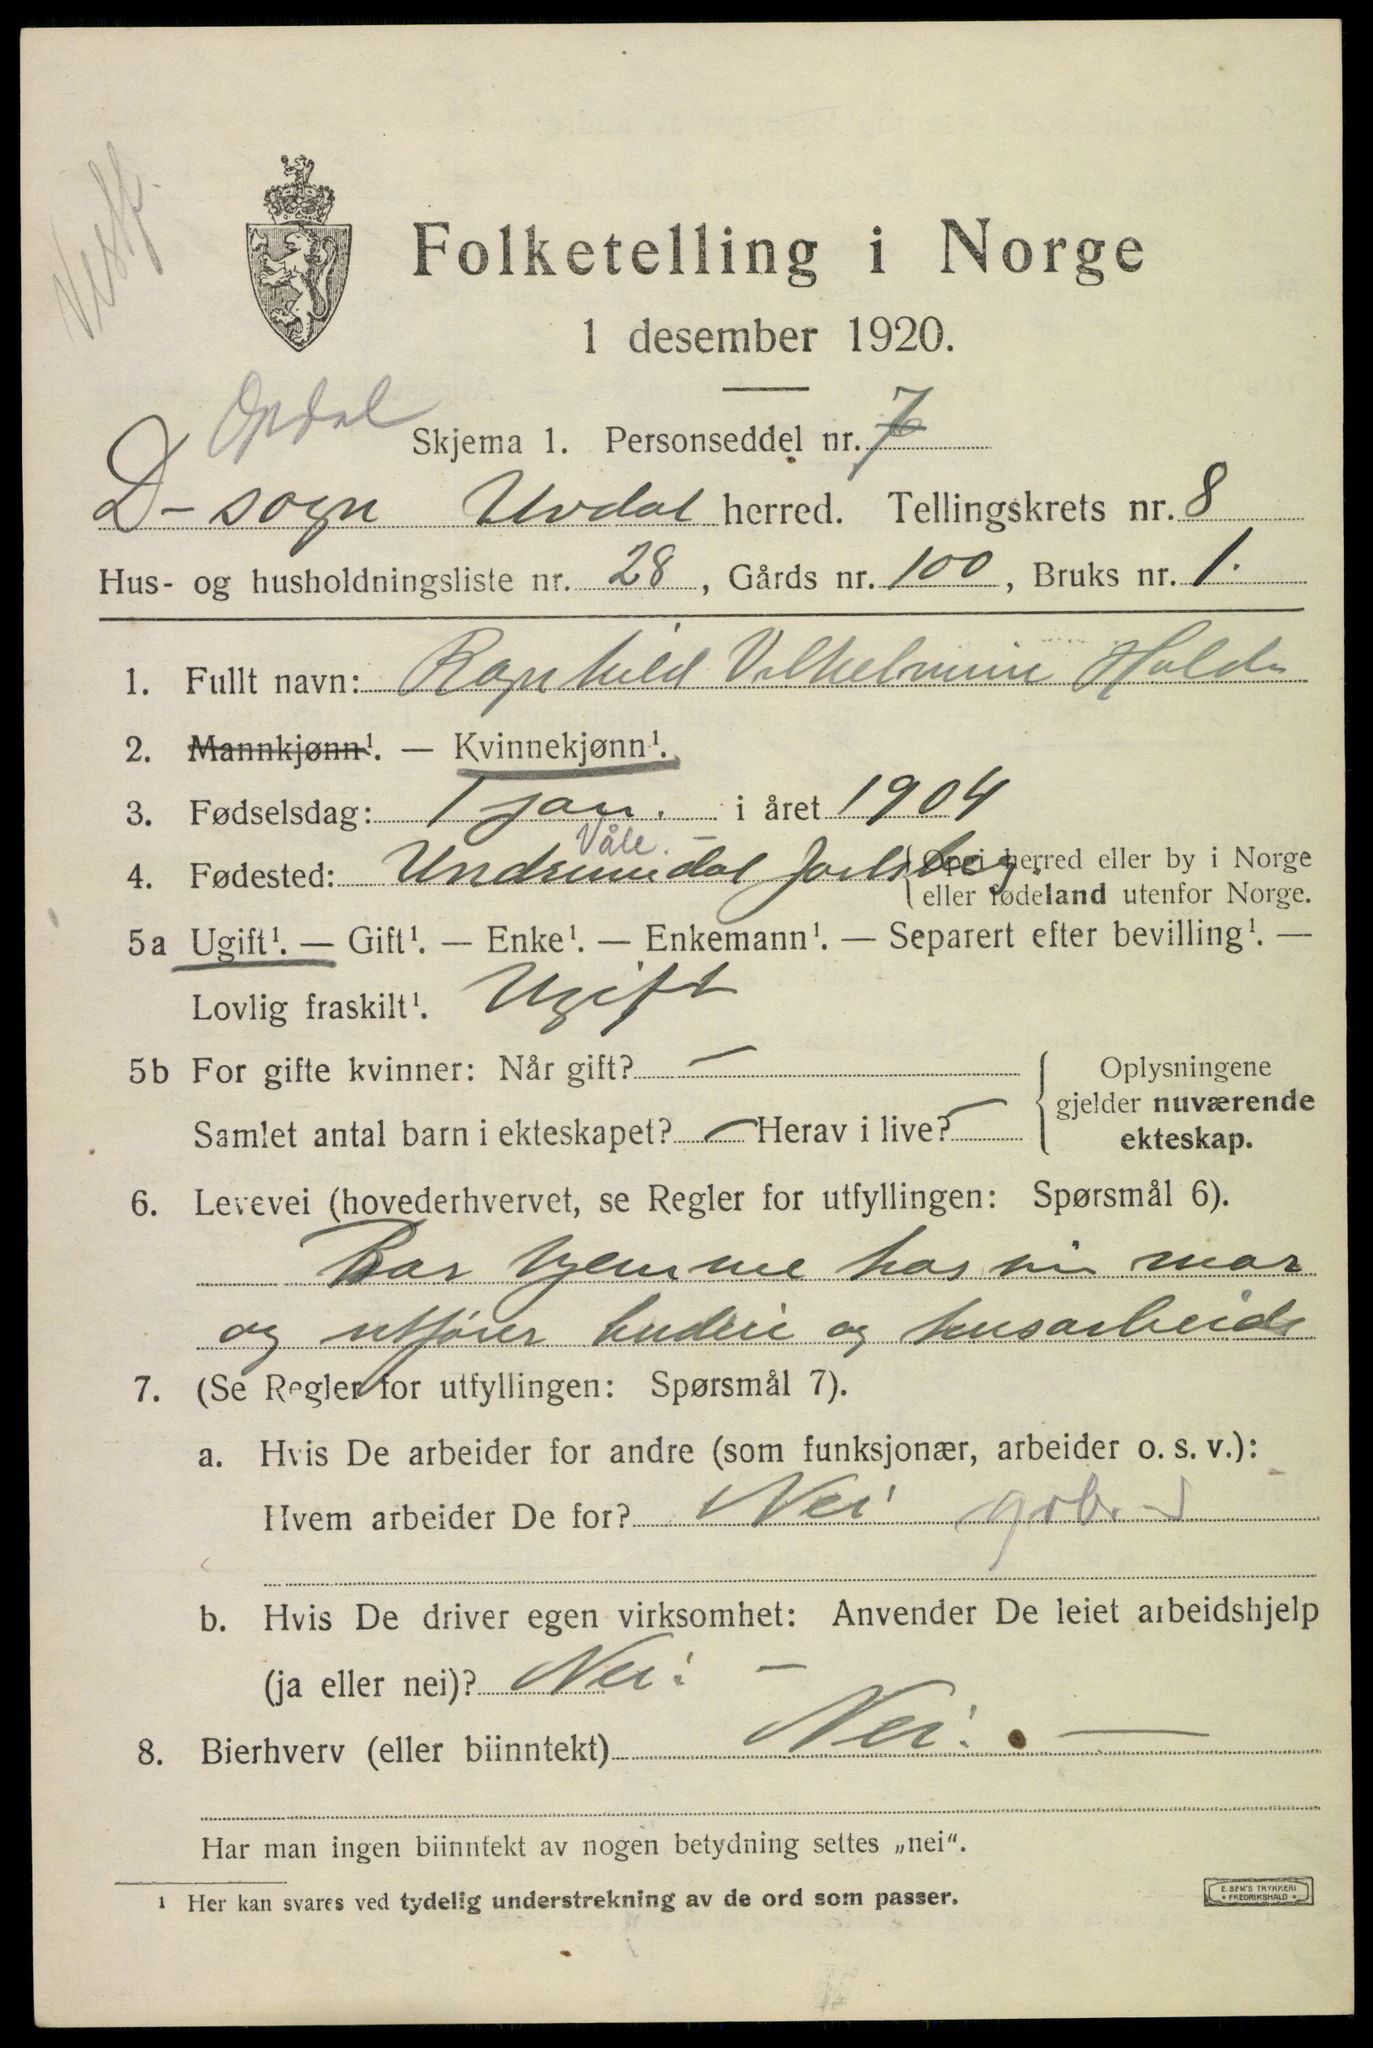 Vestf.
Folketelling i Norge
1 desember 1920.
Opdal
Skjema 1. Personseddel nr. 7
D-sogn Uvdal herred. Tellingskrets nr. 8
Hus- og husholdningsliste nr. 28, Gårds nr. 100, Bruks nr. 1.
1. Fullt navn: Ragnhild Vilhelmine
2. Mannkjønn¹. — Kvinnekjønn¹.
3. Fødselsdag: 1 jan. i året 1904
Våle. —
4. Fødested: Undrumdal Jarlsberg. {Opgi herred eller by i Norge
eller fødeland utenfor Norge.
5a Ugift¹. — Gift¹. — Enke¹. — Enkemann¹. — Separert efter bevilling¹. —
Lovlig fraskilt¹. Ugift
5b For gifte kvinner: Når gift? — {Oplysningene
gjelder nuværende
Samlet antal barn i ekteskapet? — Herav i live? — ekteskap.
6. Levevei (hovederhvervet, se Regler for utfyllingen: Spørsmål 6).
Bor hjemme hos min mor
og utfører buderi og husarbeide
7. (Se Regler for utfyllingen: Spørsmål 7).
a. Hvis De arbeider for andre (som funksjonær, arbeider o. s. v.):
Hvem arbeider De for? Nei
b. Hvis De driver egen virksomhet: Anvender De leiet arbeidshjelp
(ja eller nei)? Nei. —
8. Bierhverv (eller biinntekt) Nei. —
Har man ingen biinntekt av nogen betydning settes „nei“.
¹ Her kan svares ved tydelig understrekning av de ord som passer.
E. SEM'S TRYKKERI
FREDRIKSHALD